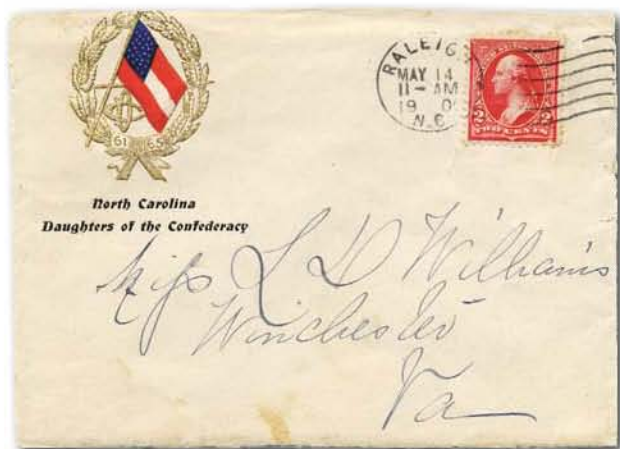 61 65
North Carolina
Daughters of the Confederacy
RALEIGH
MAY 14
11-AM
19 0
N.C.
2 2
TWO CENTS
Miss L D Williams
Winchester
Va